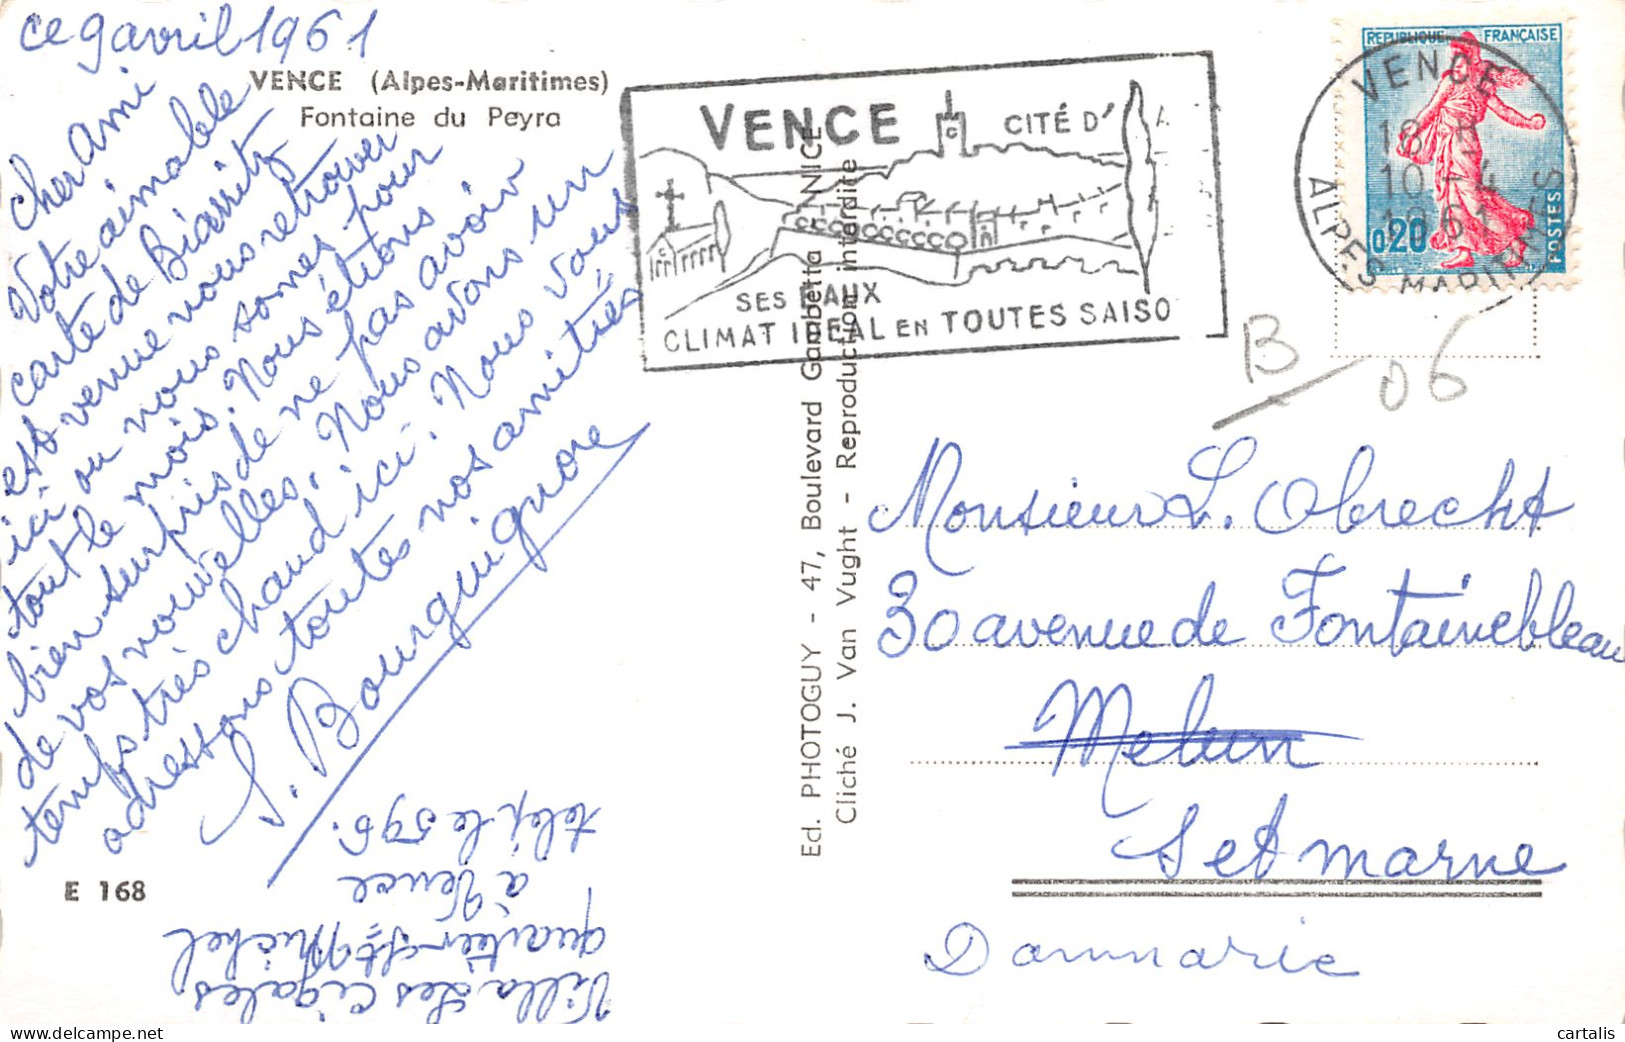 ce 9 avril 1961
VENCE (Alpes-Maritimes)
Fontaine du Peyra
Cher Ami
Votre aimable
carte de Biarritz
est venue nous retrouver
ici ou nous somes pour
tout le mois. Nous étions
bien surpris de ne pas avoir
de vos nouvelles. Nous avons un
temps très chaud ici. Nous vous
adressons toutes nos amitiés
S. Bourguignon
Villa Les Cigales
quartier St Michel
à Vence
télép le 596.
E 168
Ed. PHOTOGUY - 47, Boulevard Gambetta NICE
Cliché J. Van Vught - Reproduction interdite
VENCE CITÉ D'A
SES EAUX
CLIMAT IDEAL EN TOUTES SAISO
REPUBLIQUE FRANÇAISE
0,20
POSTES
VENCE
18 H
10 - 4
1961
ALPES MARITIMES
B/06
Monsieur L. Obrecht
30 avenue de Fontainebleau
Melun
S et marne
Dammarie
cartalis